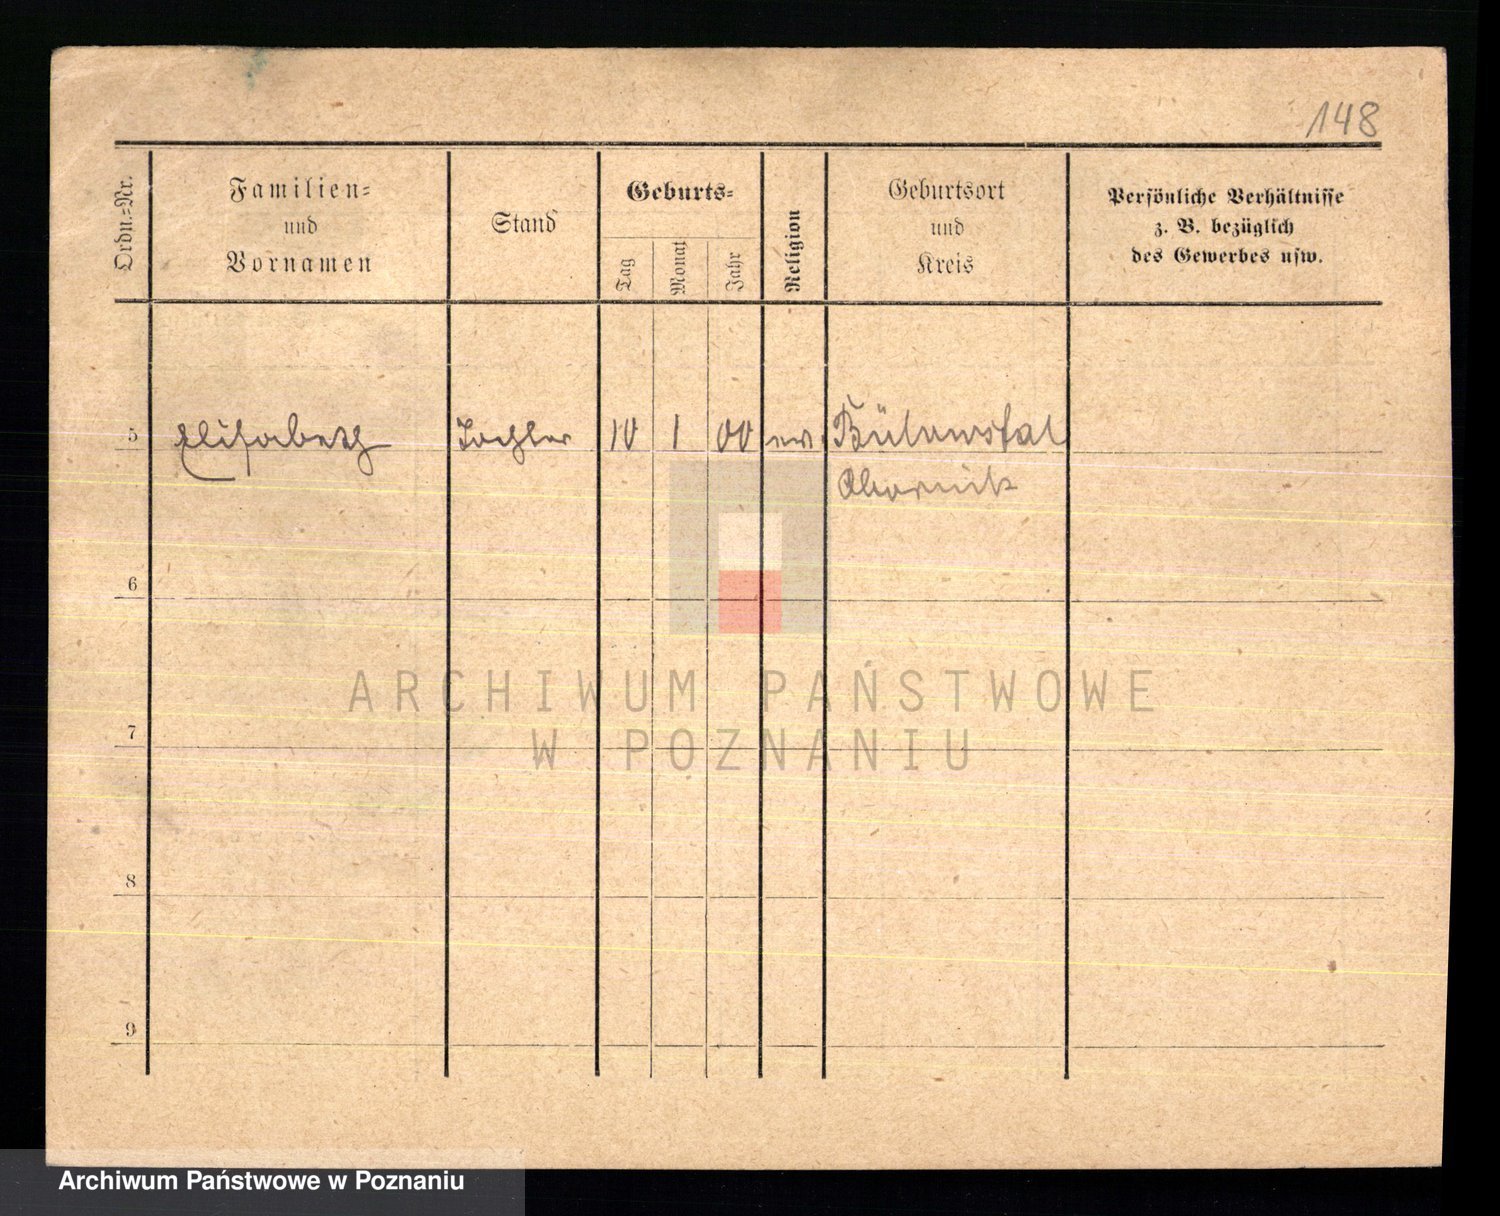 148
Ordn.=Nr.
Familien=
und
Vornamen
Stand
Geburts=
Tag
Monat
Jahr
Religion
Geburtsort
und
Kreis
Persönliche Verhältnisse
z. B. bezüglich
des Gewerbes usw.
5 Elisabeth Tochter 10 1 00 ev. Bülowstal
Obornik
6
7
8
9
ARCHIWUM PAŃSTWOWE
W POZNANIU
Archiwum Państwowe w Poznaniu